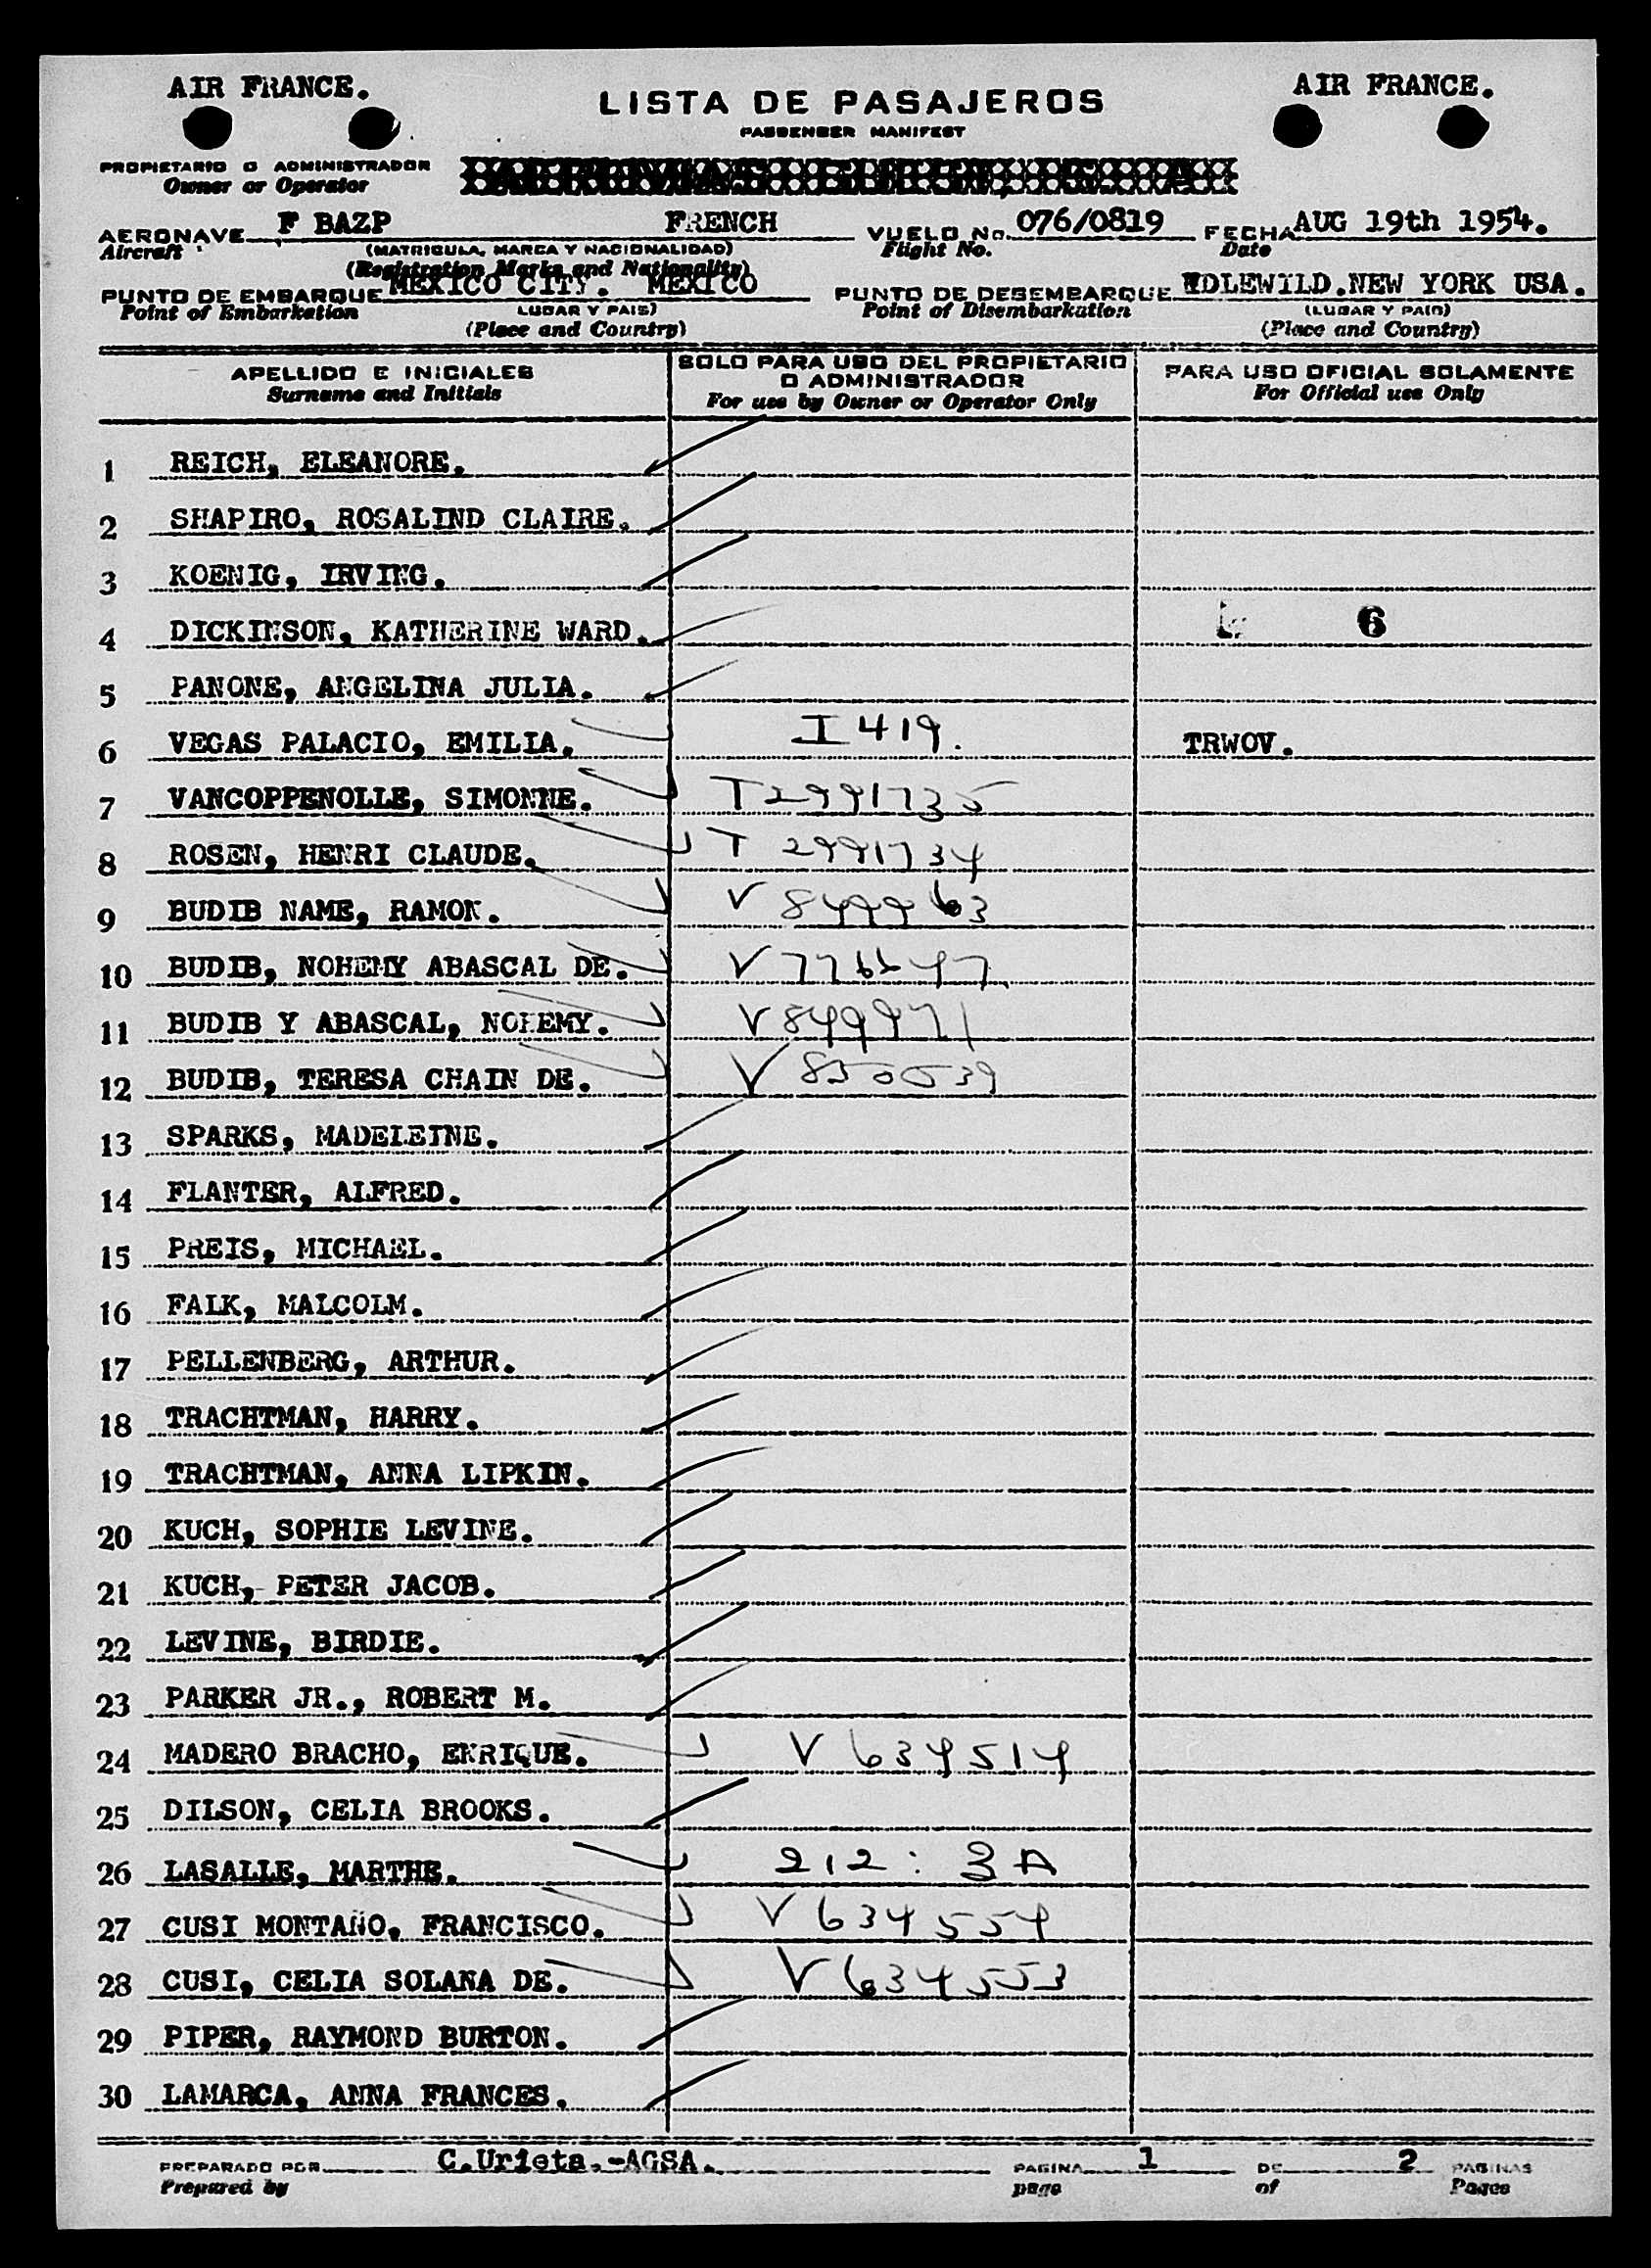 AIR FRANCE.
AIR FRANCE.
LISTA DE PASAJEROS
PASSENGER MANIFEST
PROPIETARIO O ADMINISTRADOR
Owner or Operator
AERONAVE F BAZP FRENCH VUELO No. 076/0819 FECHA AUG 19th 1954.
Aircraft (MATRICULA, MARCA Y NACIONALIDAD) Flight No. Date
(Registration Marks and Nationality)
PUNTO DE EMBARQUE MEXICO CITY. MEXICO PUNTO DE DESEMBARQUE IDLEWILD.NEW YORK USA.
Point of Embarkation (LUGAR Y PAIS) Point of Disembarkation (LUGAR Y PAIS)
(Place and Country) (Place and Country)
APELLIDO E INICIALES
Surname and Initials
SOLO PARA USO DEL PROPIETARIO
O ADMINISTRADOR
For use by Owner or Operator Only
PARA USO OFICIAL SOLAMENTE
For Official use Only
1 REICH, ELEANORE.
2 SHAPIRO, ROSALIND CLAIRE.
3 KOENIG, IRVING.
4 DICKINSON, KATHERINE WARD. 6
5 PANONE, ANGELINA JULIA.
6 VEGAS PALACIO, EMILIA. I 419. TRWOV.
7 VANCOPPENOLLE, SIMONNE. T2991735
8 ROSEN, HENRI CLAUDE. T 2991734
9 BUDIB NAME, RAMON. V 849963
10 BUDIB, NOHEMY ABASCAL DE. V 776647
11 BUDIB Y ABASCAL, NOHEMY. V 849971
12 BUDIB, TERESA CHAIN DE. V 850039
13 SPARKS, MADELEINE.
14 FLANTER, ALFRED.
15 PREIS, MICHAEL.
16 FALK, MALCOLM.
17 PELLENBERG, ARTHUR.
18 TRACHTMAN, HARRY.
19 TRACHTMAN, ANNA LIPKIN.
20 KUCH, SOPHIE LEVINE.
21 KUCH, PETER JACOB.
22 LEVINE, BIRDIE.
23 PARKER JR., ROBERT M.
24 MADERO BRACHO, ENRIQUE. V 634514
25 DILSON, CELIA BROOKS.
26 LASALLE, MARTHE. 212 : 3A
27 CUSI MONTAÑO, FRANCISCO. V 634554
28 CUSI, CELIA SOLANA DE. V 634553
29 PIPER, RAYMOND BURTON.
30 LAMARCA, ANNA FRANCES.
PREPARADO POR C.Urieta.-AGSA. PAGINA 1 DE 2 PAGINAS
Prepared by page of Pages